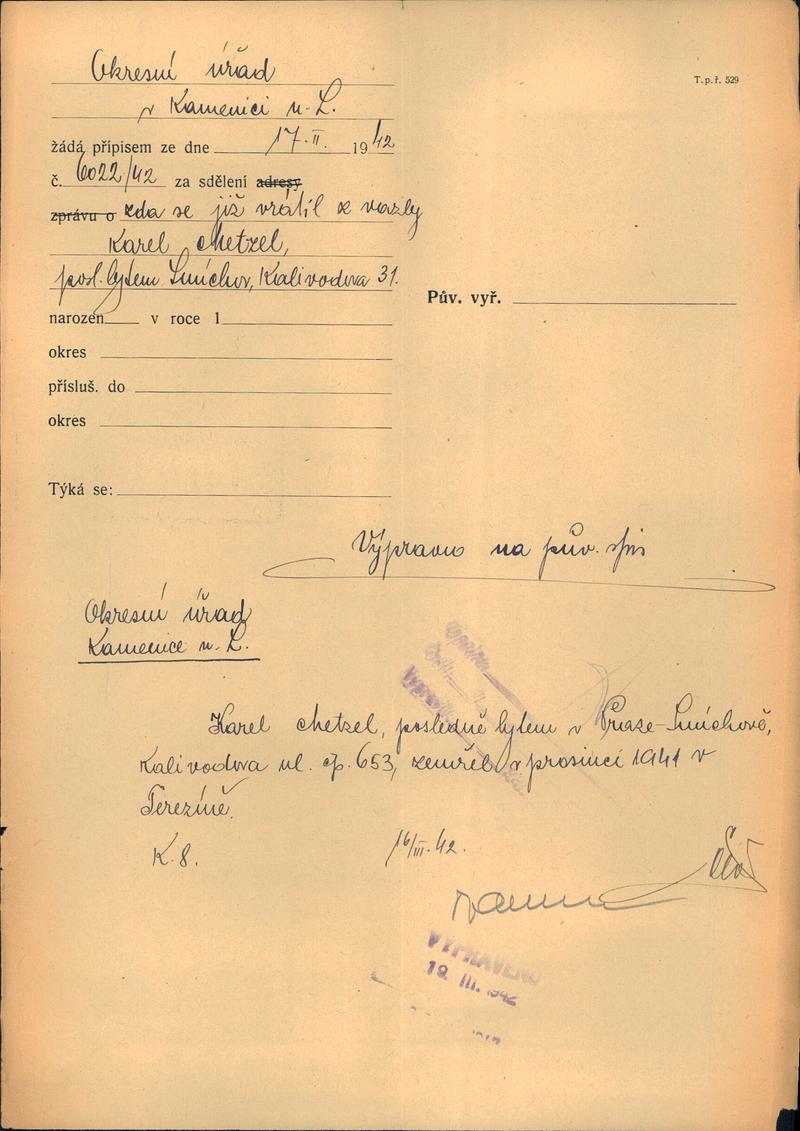 Okresní úřad
T. p. ř. 529
v Kamenici n. L.
žádá přípisem ze dne 17. II. 1942
č. 6022/42 za sdělení adresy
zprávu o zda se již vrátil z vazby
Karel Metzel,
posl. bytem Smíchov, Kalivodova 31.
Pův. vyř.
narozen v roce 1
okres
přísluš. do
okres
Týká se:
Vypraveno na pův. spis
Okresní úřad
Kamenice n. L.
Karel Metzel, posledně bytem v Praze-Smíchově,
Kalivodova ul. čp. 653, zemřel v prosinci 1941 v
Terezíně.
K. 8. 16/III. 42.
VYPRAVENO
19. III. 1942